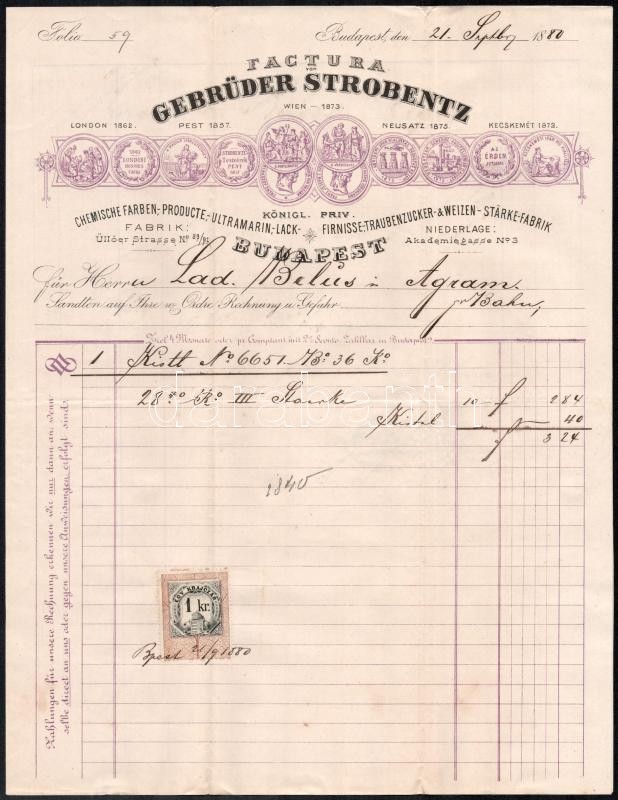 Folio 59
Budapest, den 21. Septbr 1880
FACTURA
von
GEBRÜDER STROBENTZ
WIEN – 1873.
LONDON 1862. PEST 1857. NEUSATZ 1875. KECSKEMÉT 1872.
1862
LONDINI
HONORIS
CAUSA
AZ
ÉRDEM
JUTALMA
KÖNIGL. PRIV.
CHEMISCHE FARBEN,- PRODUCTE,- ULTRAMARIN,- LACK- FIRNISSE-TRAUBENZUCKER- & WEIZEN- STÄRKE-FABRIK
FABRIK: NIEDERLAGE:
Üllőer Strasse No 89/91. Akademiegasse No 3
BUDAPEST
für Herrn Lad. Belus in Agram
Sandten auf Ihre w. Ordre Rechnung u Gefahr pr Bahn,
Ziel 4 Monate oder pr Comptant mit 2% Sconto Zahlbar in Budapest.
1 Kistl No 6651 Bo 36 Ko
28 Ko III Staerke 10 f 2 84
Kistel 40
f 3 24
1840
EGY KRAJCZÁR
1 kr.
Bpest 21/9 1880
Zahlungen für unsere Rechnung erkennen wir nur dann an, wenn
selbe direct an uns oder gegen unsere Anweisungen erfolgt sind.
darabanth